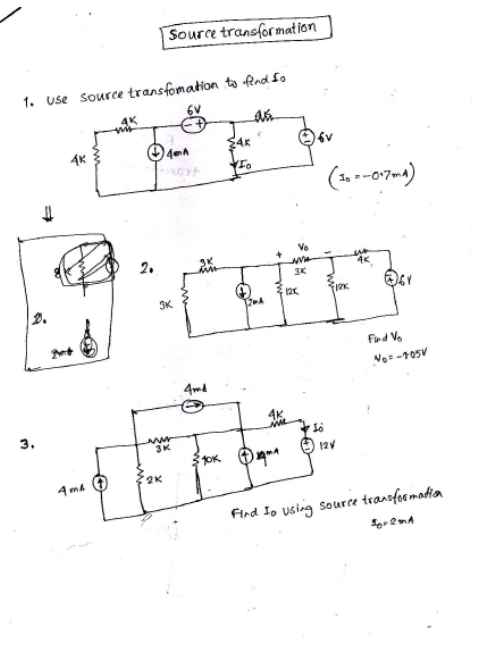 Source transformation
1. Use source transfomation to find Io
4K
6V
- +
4K
4K
4mA
4K
Io
+
-
6V
(Io = -0.7mA)
2.
3K
+ Vo -
3K
4K
3K
2mA
12K
12K
6V
Find Vo
3.
4mA
3K
4K
Io
4mA
2K
10K
12V
Find Io using source transformation
Io = 2mA